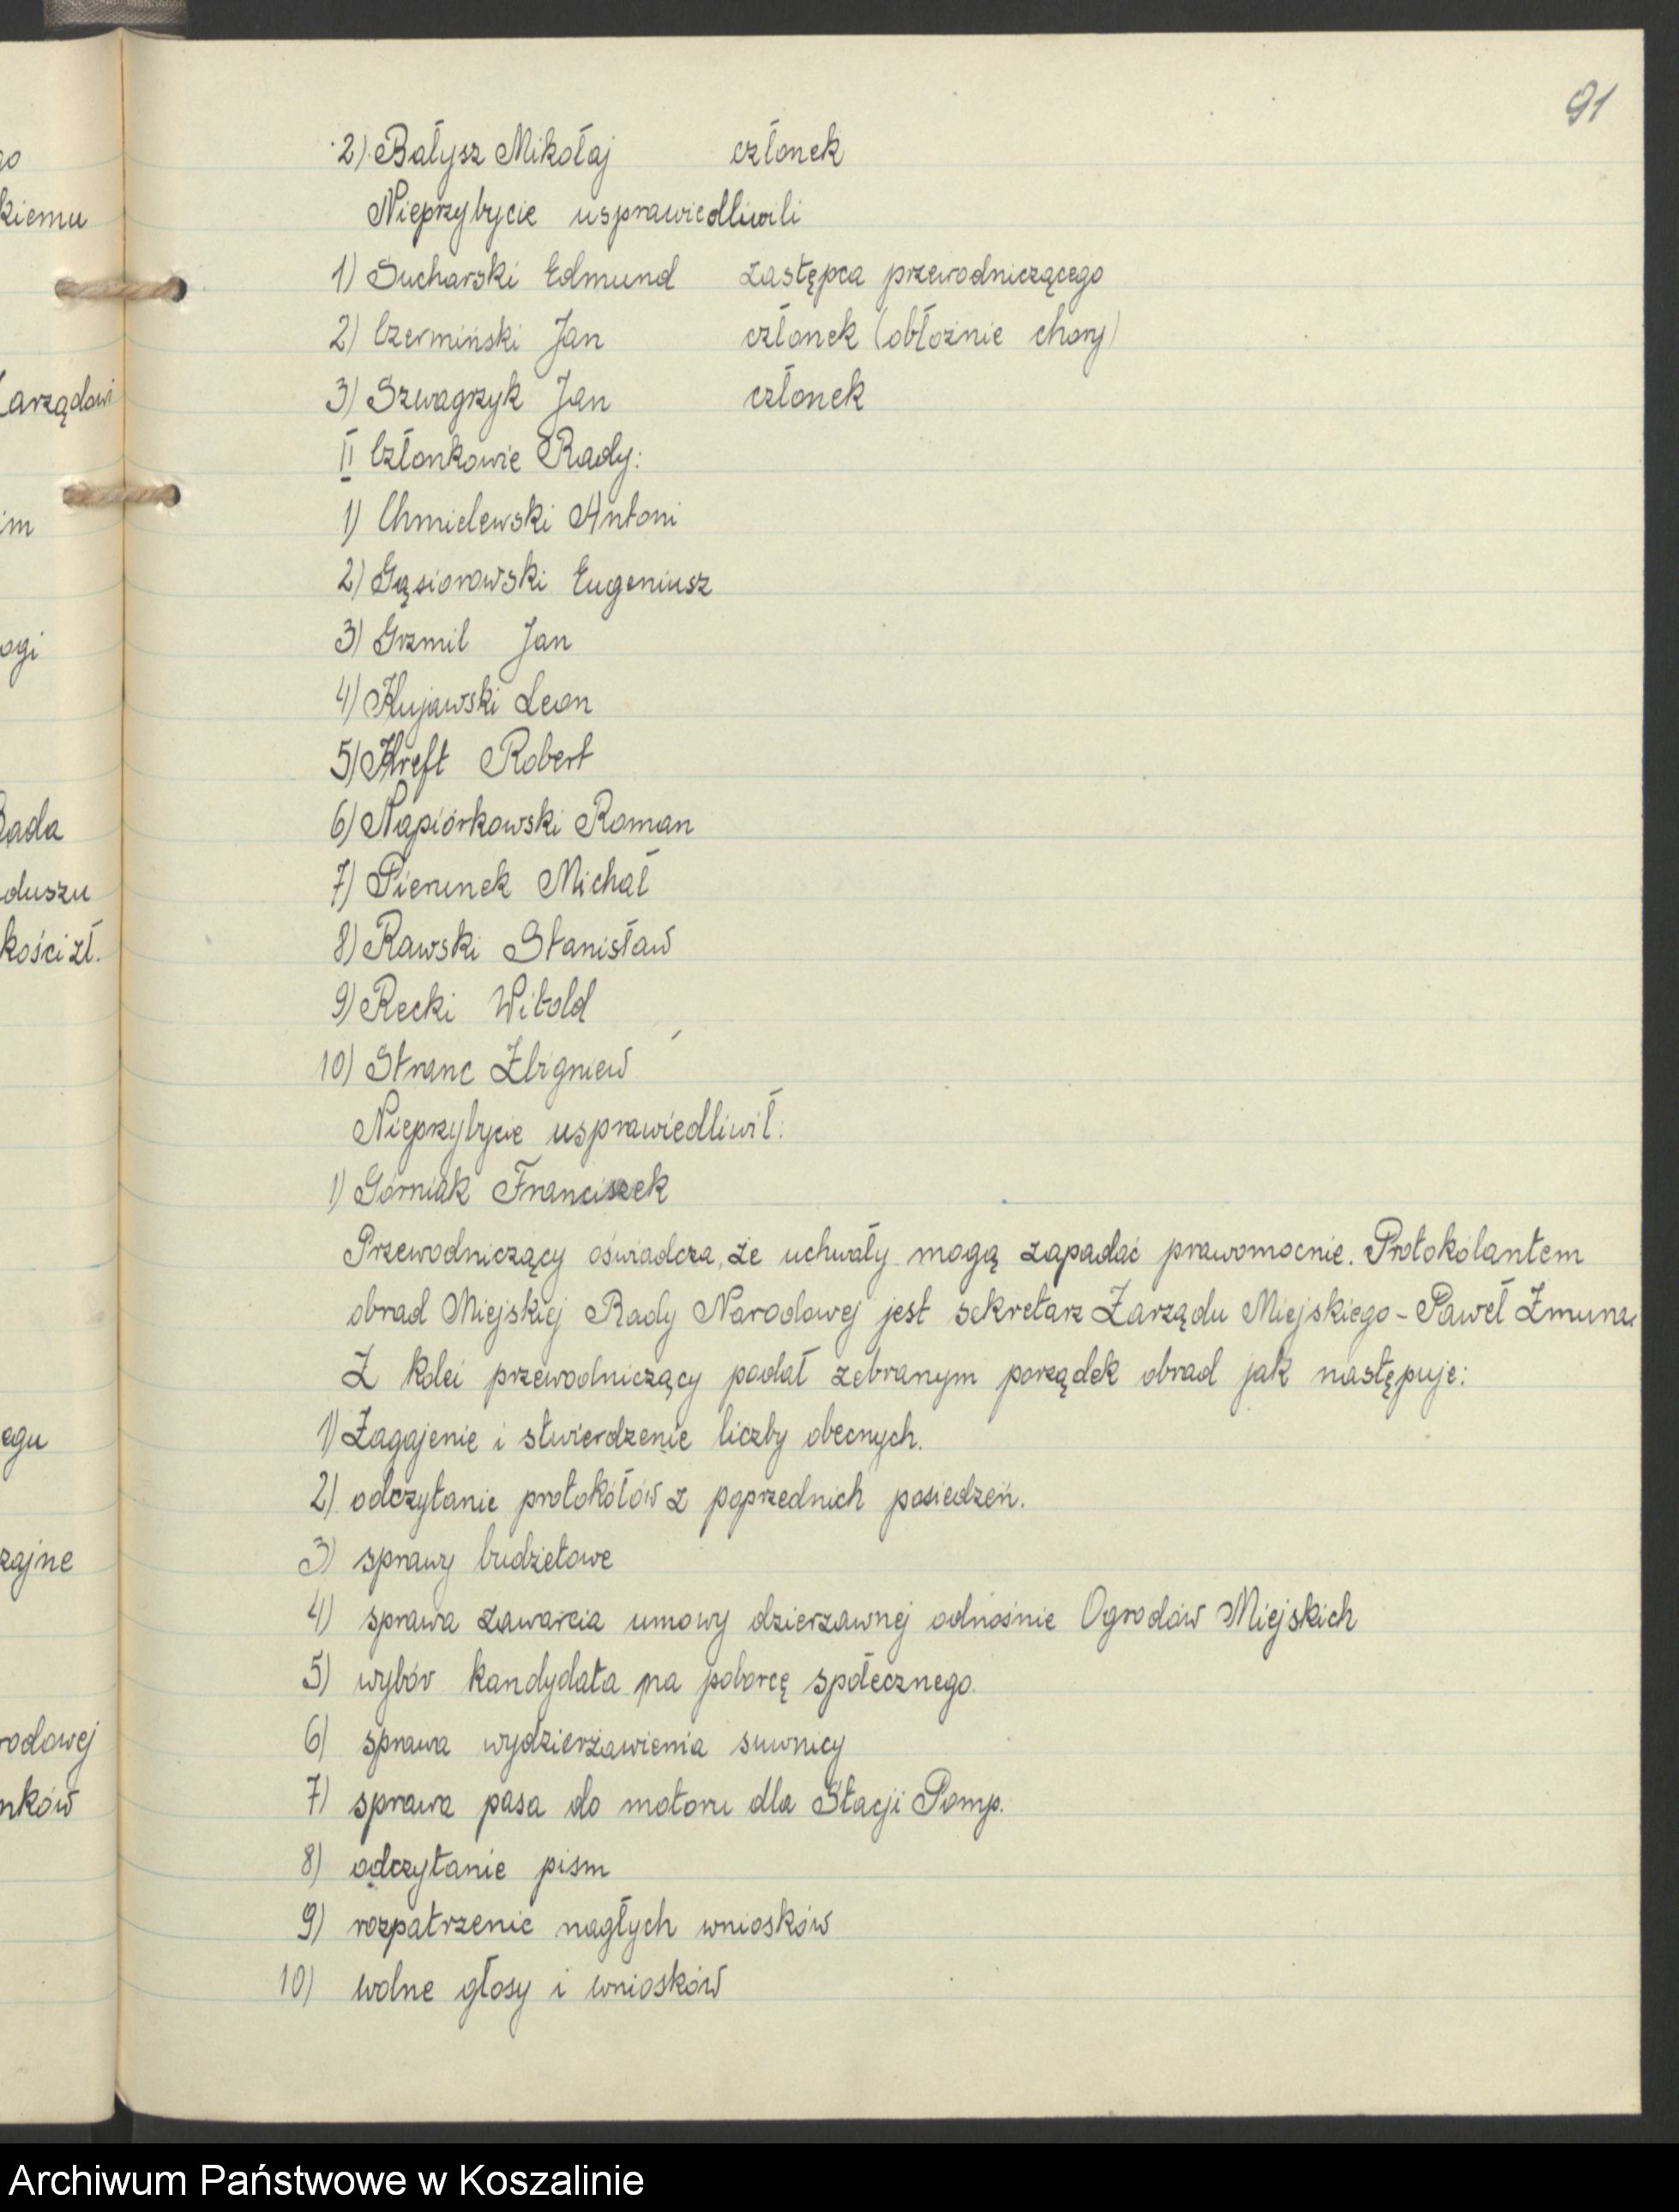 91
2) Bałysz Mikołaj członek
Nieprzybycie usprawiedliwili
1) Sucharski Edmund zastępca przewodniczącego
2) Czermiński Jan członek (obłożnie chory)
3) Szwagrzyk Jan członek
II Członkowie Rady:
1) Chmielewski Antoni
2) Gąsiorowski Eugeniusz
3) Grzmil Jan
4) Kujawski Leon
5) Kreft Robert
6) Napiórkowski Roman
7) Pierunek Michał
8) Rawski Stanisław
9) Recki Witold
10) Stranc Zbigniew
Nieprzybycie usprawiedliwił:
1) Górniak Franciszek
Przewodniczący oświadcza, że uchwały mogą zapadać prawomocnie. Protokólantem
obrad Miejskiej Rady Narodowej jest sekretarz Zarządu Miejskiego - Paweł Zmuna.
Z kolei przewodniczący podał zebranym porządek obrad jak następuje:
1) Zagajenie i stwierdzenie liczby obecnych.
2) odczytanie protokółów z poprzednich posiedzeń.
3) sprawy budżetowe
4) sprawa zawarcia umowy dzierżawnej odnośnie Ogrodów Miejskich
5) wybór kandydata na poborcę społecznego.
6) sprawa wydzierżawienia suwnicy
7) sprawa pasa do motoru dla Stacji Pomp.
8) odczytanie pism
9) rozpatrzenie nagłych wniosków
10) wolne głosy i wniosków
go
kiemu
Zarządowi
im
ogi
Rada
duszu
kości zł.
egu
zajne
rodowej
nków
Archiwum Państwowe w Koszalinie